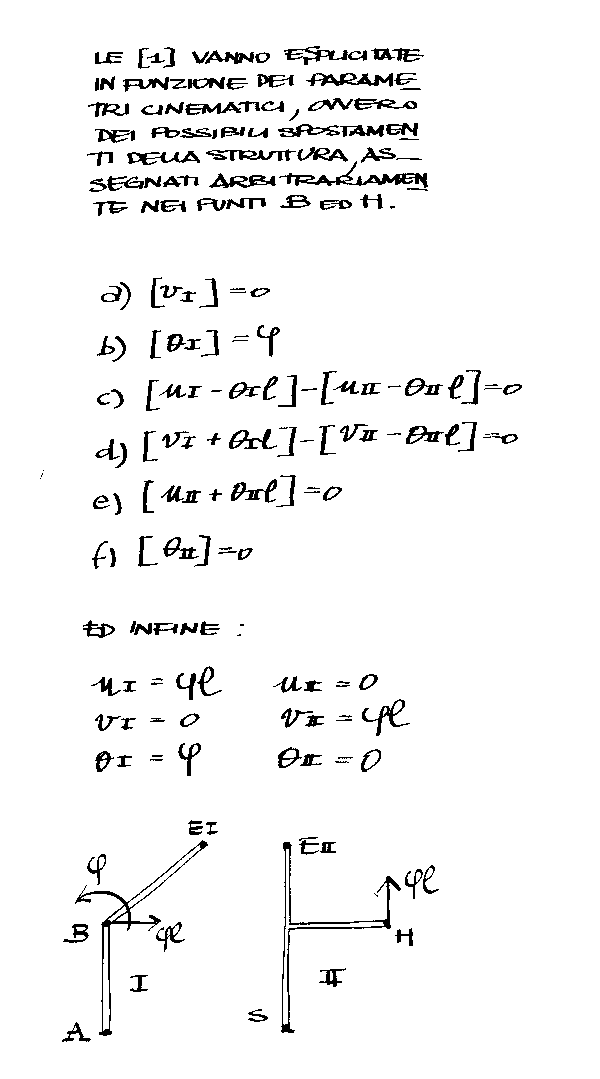 LE [1] VANNO ESPLICITATE
IN FUNZIONE DEI PARAME
TRI CINEMATICI, OVVERO
DEI POSSIBILI SPOSTAMEN
TI DELLA STRUTTURA, AS_
SEGNATI ARBITRARIAMEN
TE NEI PUNTI B ED H.
a) [v_I] = 0
b) [θ_I] = φ
c) [u_I - θ_I l] - [u_II - θ_II l] = 0
d) [v_I + θ_I l] - [v_II - θ_II l] = 0
e) [u_II + θ_II l] = 0
f) [θ_II] = 0
ED INFINE :
u_I = φl u_II = 0
v_I = 0 v_II = φl
θ_I = φ θ_II = 0
E_I
E_II
φ
φl
B
φl
H
I
II
S
A